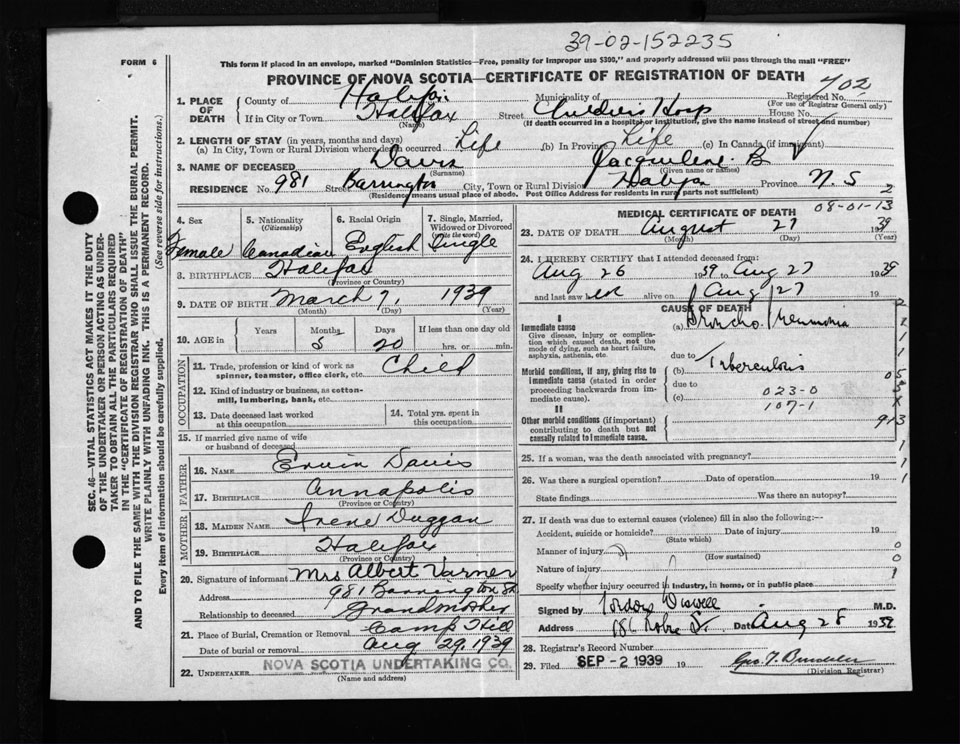 39-02-152235
FORM 6
This form if placed in an envelope, marked "Dominion Statistics—Free, penalty for improper use $300," and properly addressed will pass through the mail "FREE"
PROVINCE OF NOVA SCOTIA—CERTIFICATE OF REGISTRATION OF DEATH
702
1. PLACE OF DEATH
County of Halifax Municipality of Registered No.
(For use of Registrar General only)
If in City or Town Halifax Street Children's Hosp House No.
(Name) (If death occurred in a hospital or institution, give the name instead of street and number)
2. LENGTH OF STAY (in years, months and days)
(a) In City, Town or Rural Division where death occurred Life (b) In Province Life (c) In Canada (if immigrant)
3. NAME OF DECEASED Davis Jacquilene B
(Surname) (Given name or names)
RESIDENCE No. 981 Street Barrington City, Town or Rural Division Halifax Province N.S 2
(Residence means usual place of abode. Post Office Address for residents in rural parts not sufficient)
4. Sex Female
5. Nationality (Citizenship) Canadian
6. Racial Origin English
7. Single, Married, Widowed or Divorced (write the word) Single
8. BIRTHPLACE Halifax
(Province or Country)
9. DATE OF BIRTH March 7, 1939
(Month) (Day) (Year)
10. AGE in Years Months Days If less than one day old
5 20 hrs. or min.
OCCUPATION
11. Trade, profession or kind of work as spinner, teamster, office clerk, etc. Child
12. Kind of industry or business, as cotton-mill, lumbering, bank, etc.
13. Date deceased last worked at this occupation
14. Total yrs. spent in this occupation
15. If married give name of wife or husband of deceased
FATHER
16. NAME Ervin Davis
17. BIRTHPLACE Annapolis
(Province or Country)
MOTHER
18. MAIDEN NAME Irene Duggan
19. BIRTHPLACE Halifax
(Province or Country)
20. Signature of informant Mrs Albert Varner
Address 981 Barrington St
Relationship to deceased Grandmother
21. Place of Burial, Cremation or Removal Camp Hill
Date of burial or removal Aug 29, 1939
22. UNDERTAKER NOVA SCOTIA UNDERTAKING CO.
(Name and address)
MEDICAL CERTIFICATE OF DEATH
08-01-13
23. DATE OF DEATH August 27 1939
(Month) (Day) (Year)
24. I HEREBY CERTIFY that I attended deceased from:
Aug 26 1939 to Aug 27 1939
and last saw her alive on Aug 27 19
CAUSE OF DEATH
I
Immediate cause
Give disease, injury or complication which caused death, not the mode of dying, such as heart failure, asphyxia, asthenia, etc.
(a) Broncho Pneumonia
due to
Morbid conditions, if any, giving rise to immediate cause (stated in order proceeding backwards from immediate cause)
(b) Tuberculosis
due to
(c) 023-0
107-1
II
Other morbid conditions (if important) contributing to death but not causally related to immediate cause.
913
25. If a woman, was the death associated with pregnancy?
26. Was there a surgical operation? Date of operation 19
State findings Was there an autopsy?
27. If death was due to external causes (violence) fill in also the following:—
Accident, suicide or homicide? Date of injury 19
(State which)
Manner of injury
(How sustained)
Nature of injury
Specify whether injury occurred in industry, in home, or in public place
Signed by M.D.
Address 186 Robie St. Date Aug 28 19
28. Registrar's Record Number
29. Filed SEP -2 1939 19
(Division Registrar)
SEC. 46—VITAL STATISTICS ACT MAKES IT THE DUTY
OF THE UNDERTAKER OR PERSON ACTING AS UNDER-
TAKER TO OBTAIN ALL THE PARTICULARS REQUIRED
IN THE "CERTIFICATE OF REGISTRATION OF DEATH"
AND TO FILE THE SAME WITH THE DIVISION REGISTRAR WHO SHALL ISSUE THE BURIAL PERMIT.
WRITE PLAINLY WITH UNFADING INK. THIS IS A PERMANENT RECORD.
Every item of information should be carefully supplied. (See reverse side for instructions.)